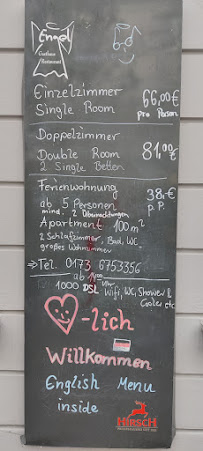 Engel
Gasthaus
Restaurant
Einzelzimmer 66,00€
Single Room pro Person
Doppelzimmer
Double Room 81,00€
2 Single Betten
Ferienwohnung 38,-€
ab 5 Personen p.P.
mind. 2 Übernachtungen
Apartment 100m²
2 Schlafzimmer, Bad, WC
großes Wohnzimmer
→Tel. 0173 6753356
ab 14 Uhr
1000 DSL Wifi, WC, Shower &
Cooler etc
-lich
Willkommen
English Menu
inside
HIRSCH